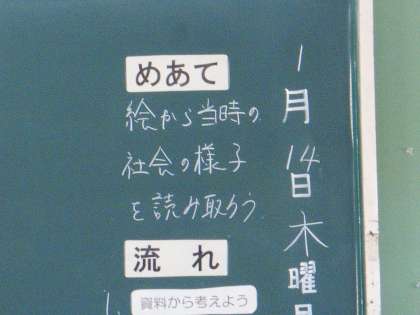 1月14日木曜日
めあて
絵から当時の
社会の様子
を読み取ろう
流れ
資料から考えよう